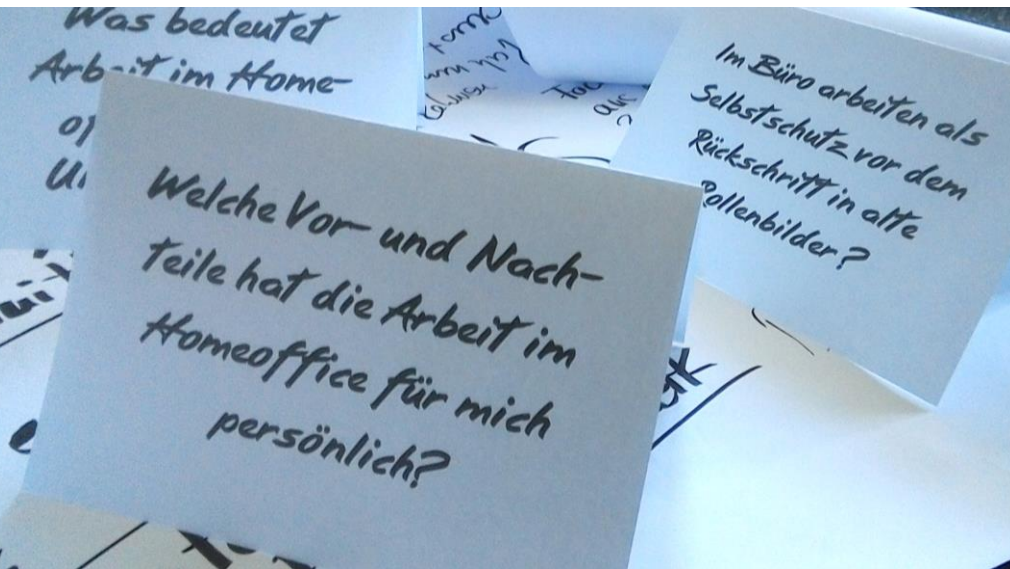 Was bedeutet
Arbeit im Home-
Welche Vor- und Nach-
teile hat die Arbeit im
Homeoffice für mich
persönlich?
Im Büro arbeiten als
Selbstschutz vor dem
Rückschritt in alte
Rollenbilder?